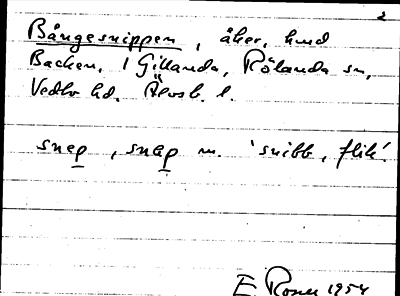 2
Bångesnippen, åker, hmd
Backen, 1 Gillanda, Rölanda sn,
Vedbo hd. Älvsb. l.
snep, snap m. 'snibb, flik'.
E Rosell 1954